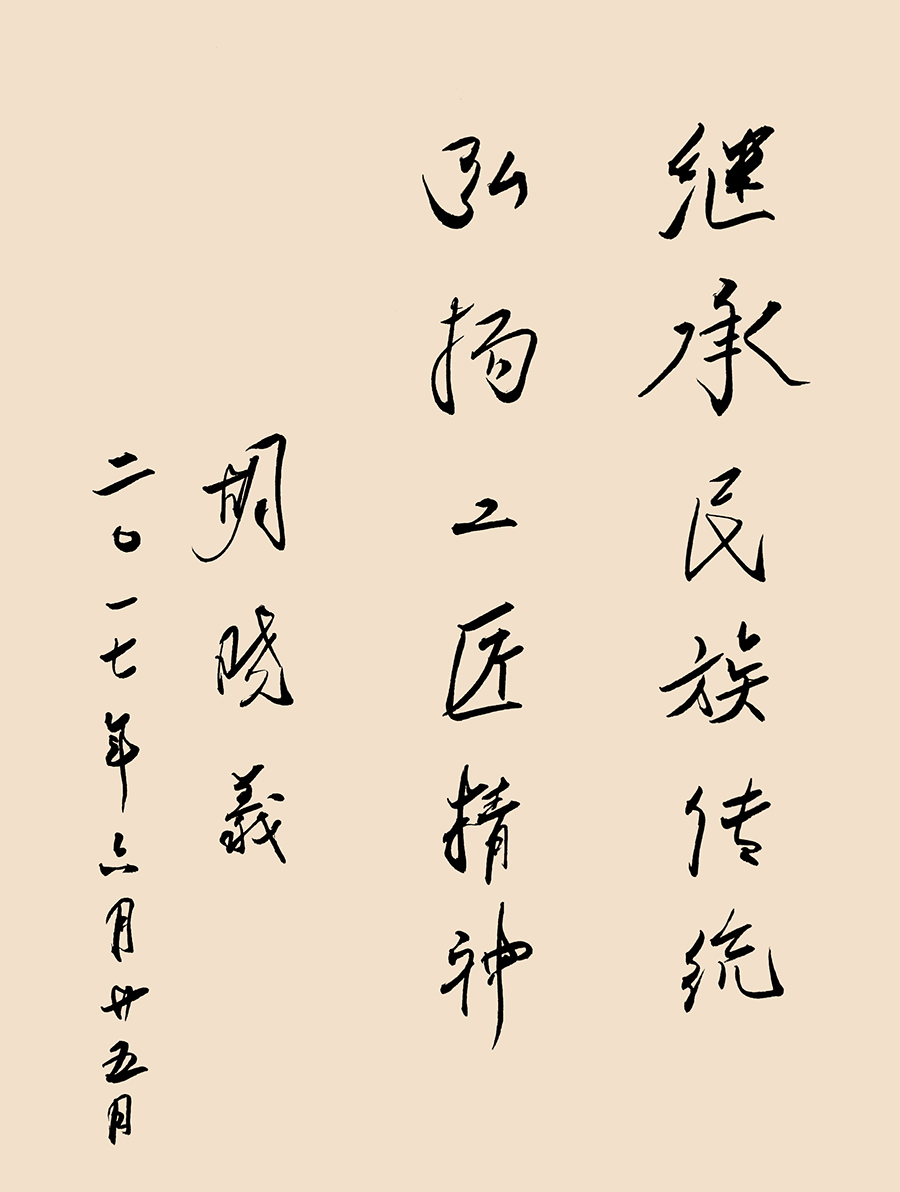 继承民族传统
弘扬工匠精神
胡晓義
二〇一七年六月廿五日